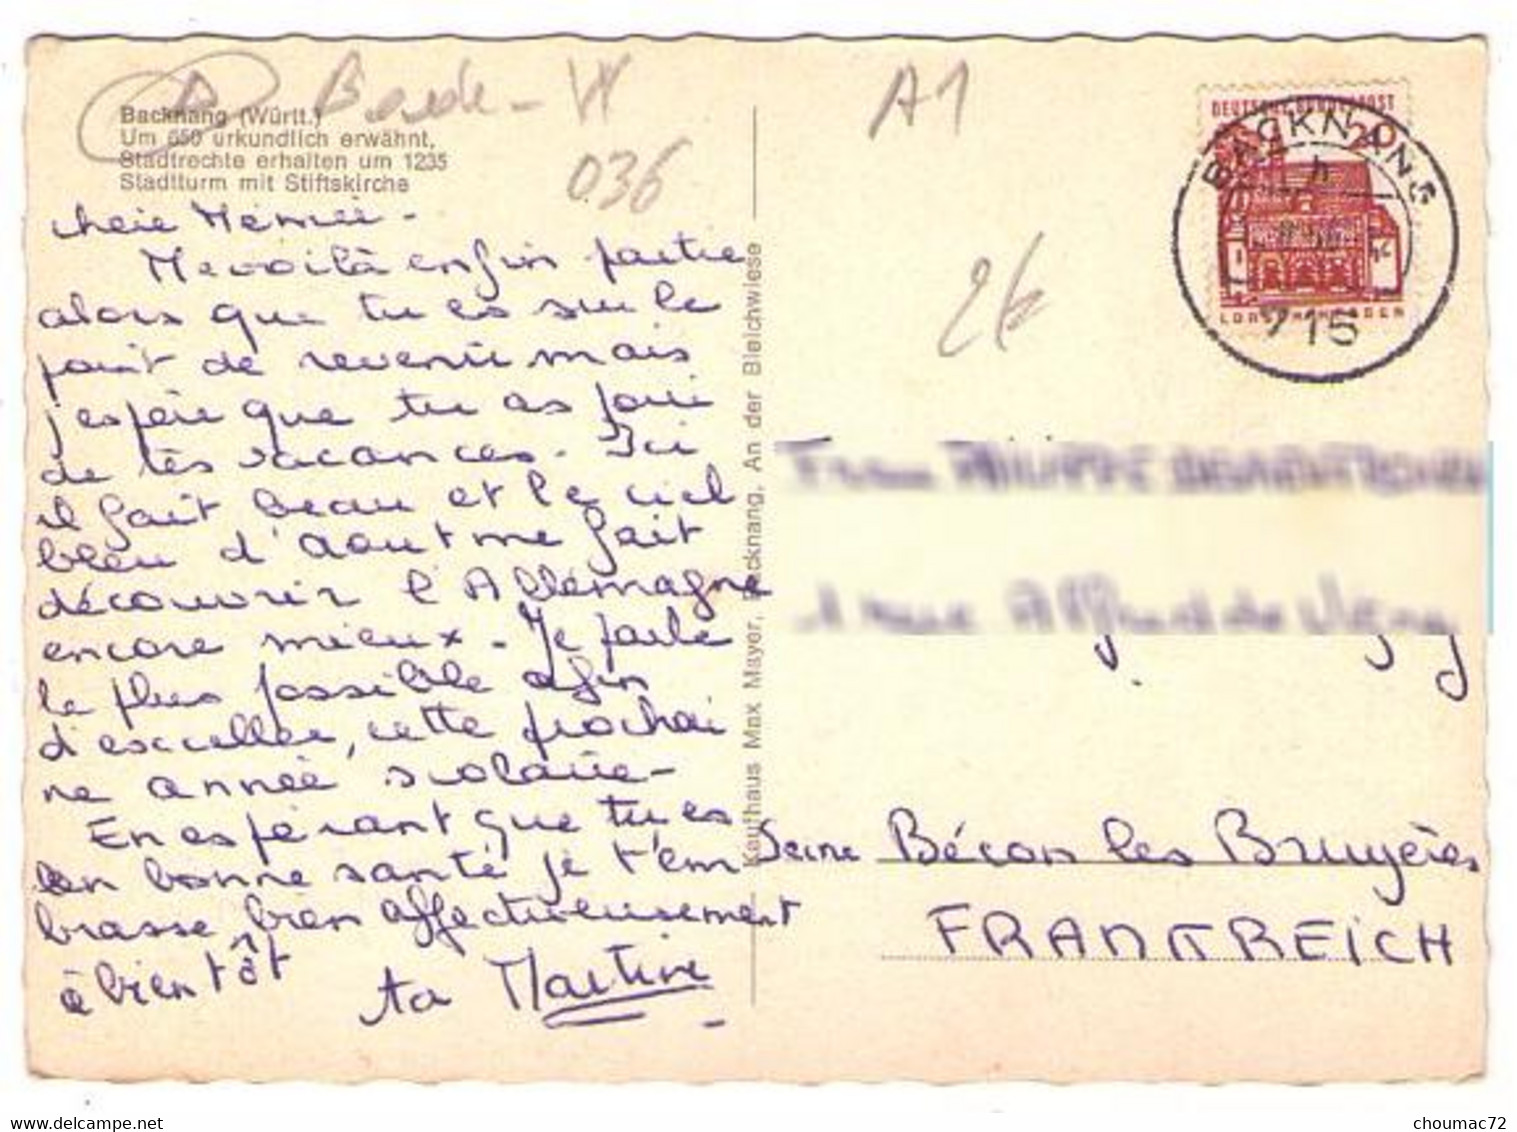 Bade-W
A1
Backnang (Württ.)
Um 650 urkundlich erwähnt,
Stadtrechte erhalten um 1235
Stadtturm mit Stiftskirche
036
2€
DEUTSCHE BUNDESPOST
20
BACKNANG
715
chère Mémée -
Me voilà enfin partie
alors que tu es sur le
point de revenir mais
j'espère que tu as joui
de tes vacances. Ici
il fait beau et le ciel
bleu d'aout me fait
découvrir l'Allemagne
encore mieux. Je parle
le plus possible afin
d'exceller, cette prochai
ne année scolaire -
En espérant que tu es
en bonne santé je t'em
brasse bien affectueusement
à bientôt
ta Martine
Kaufhaus Max Mayer, Backnang, An der Bleichwiese
Seine Bécon les Bruyères
FRANKREICH
choumac72